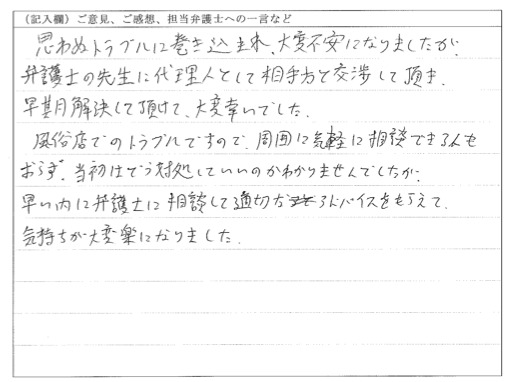 （記入欄）ご意見、ご感想、担当弁護士への一言など
思わぬトラブルに巻き込まれ、大変不安になりましたが、
弁護士の先生に代理人として相手方と交渉して頂き、
早期解決して頂けて、大変幸いでした。
風俗店でのトラブルですので、周囲に気軽に相談できる人も
おらず、当初はどう対処していいのかわかりませんでしたが、
早い内に弁護士に相談して適切なアドバイスをもらえて、
気持ちが大変楽になりました。